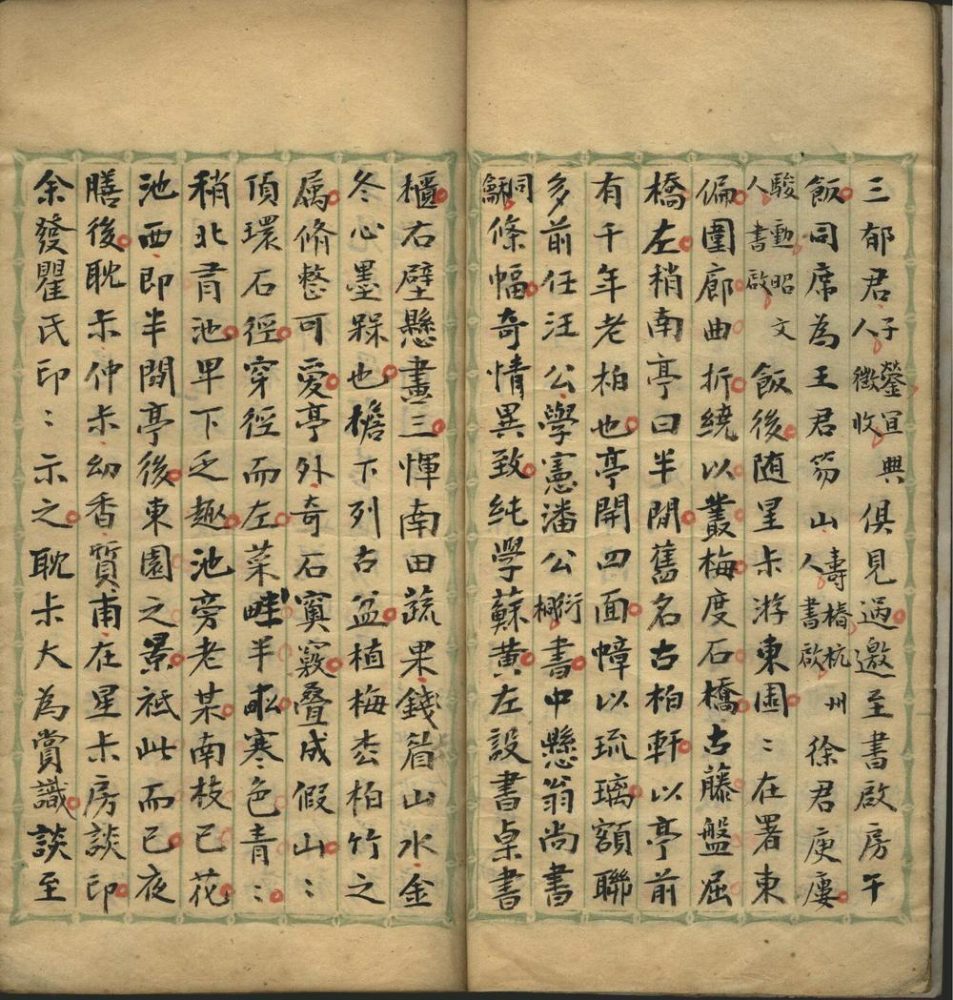 三郁君子鎣宜興人徵收俱見過邀至書啟房午
飯同席為王君笏山壽椿杭州人書啟徐君庚廔
駿勳昭文人書啟飯後随星米游東園〻在署東
偏圍廊曲折繞以叢梅度石橋古藤盤屈
橋左稍南亭曰半閒舊名古柏軒以亭前
有千年老柏也亭開四面幛以琉璃額聯
多前任汪公學憲潘公衍桐書中懸翁尚書
同龢條幅奇情異致純学蘇黄左設書桌書
櫃右壁懸畫三惲南田蔬果錢眉山水金
冬心墨槑也檐下列古盆植梅枩柏竹之
属脩整可愛亭外奇石窦竅叠成假山〻
頂環石徑穿徑而左菜畦半畝寒色青〻
稍北有池卑下乏趣池旁老某南枝已花
池西即半閒亭後東園之景祗此而已夜
膳後耽米仲米幼香質甫在星米房談印
余發瞿氏印〻示之耽米大為賞識談至